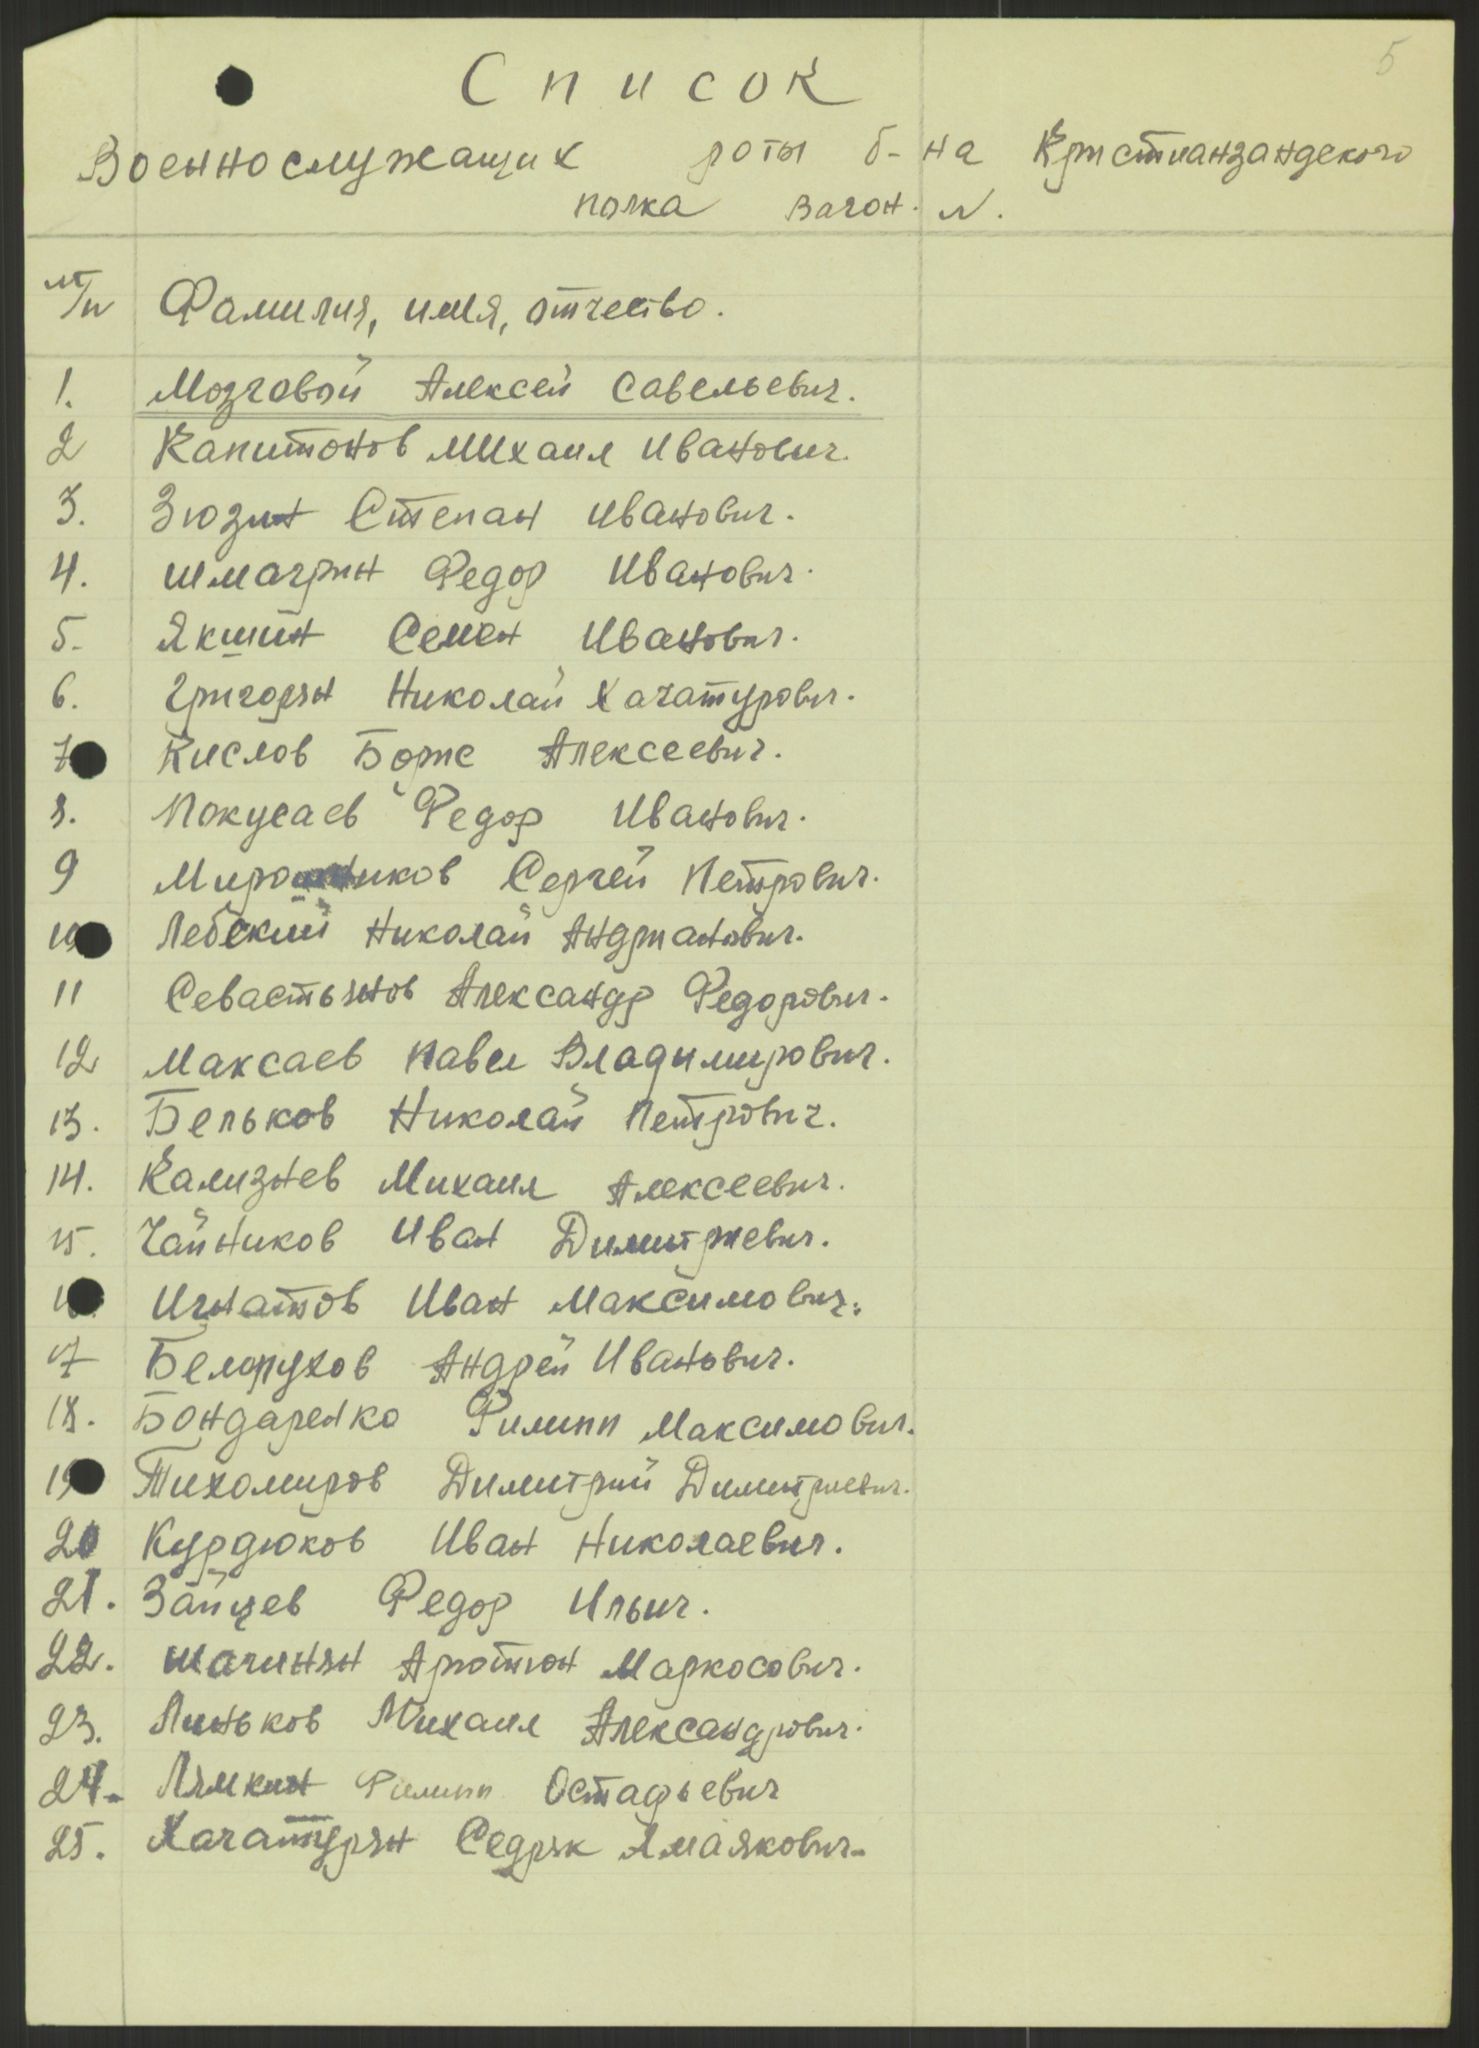 5
Список
Военнослужащих роты б-на Кристианзандского
полка вагон. N.
№/п Фамилия, имя, отчество.
1. Мозговой Алексей Савельевич.
2 Капитонов Михаил Иванович.
3. Зюзин Степан Иванович.
4. Шмагрин Федор Иванович.
5. Якшин Семен Иванович.
6. Григорян Николай Хачатурович.
7 Кислов Борис Алексеевич.
8. Покусаев Федор Иванович.
9 Мирошников Сергей Петрович.
10 Лебский Николай Андрианович.
11 Севастьянов Александр Федорович.
12 Максаев Павел Владимирович.
13. Бельков Николай Петрович.
14. Кализнев Михаил Алексеевич.
15. Чайников Иван Димитриевич.
Игнатов Иван Максимович.
17 Белорухов Андрей Иванович.
18. Бондаренко Филипп Максимович.
19 Тихомиров Димитрий Димитриевич.
20 Курдюков Иван Николаевич.
21. Зайцев Федор Ильич.
22. Шагинян Арютюн Маркосович.
23. Линьков Михаил Александрович.
24. Лямкин Филипп Остафьевич
25. Хачатурян Седряк Амаякович.